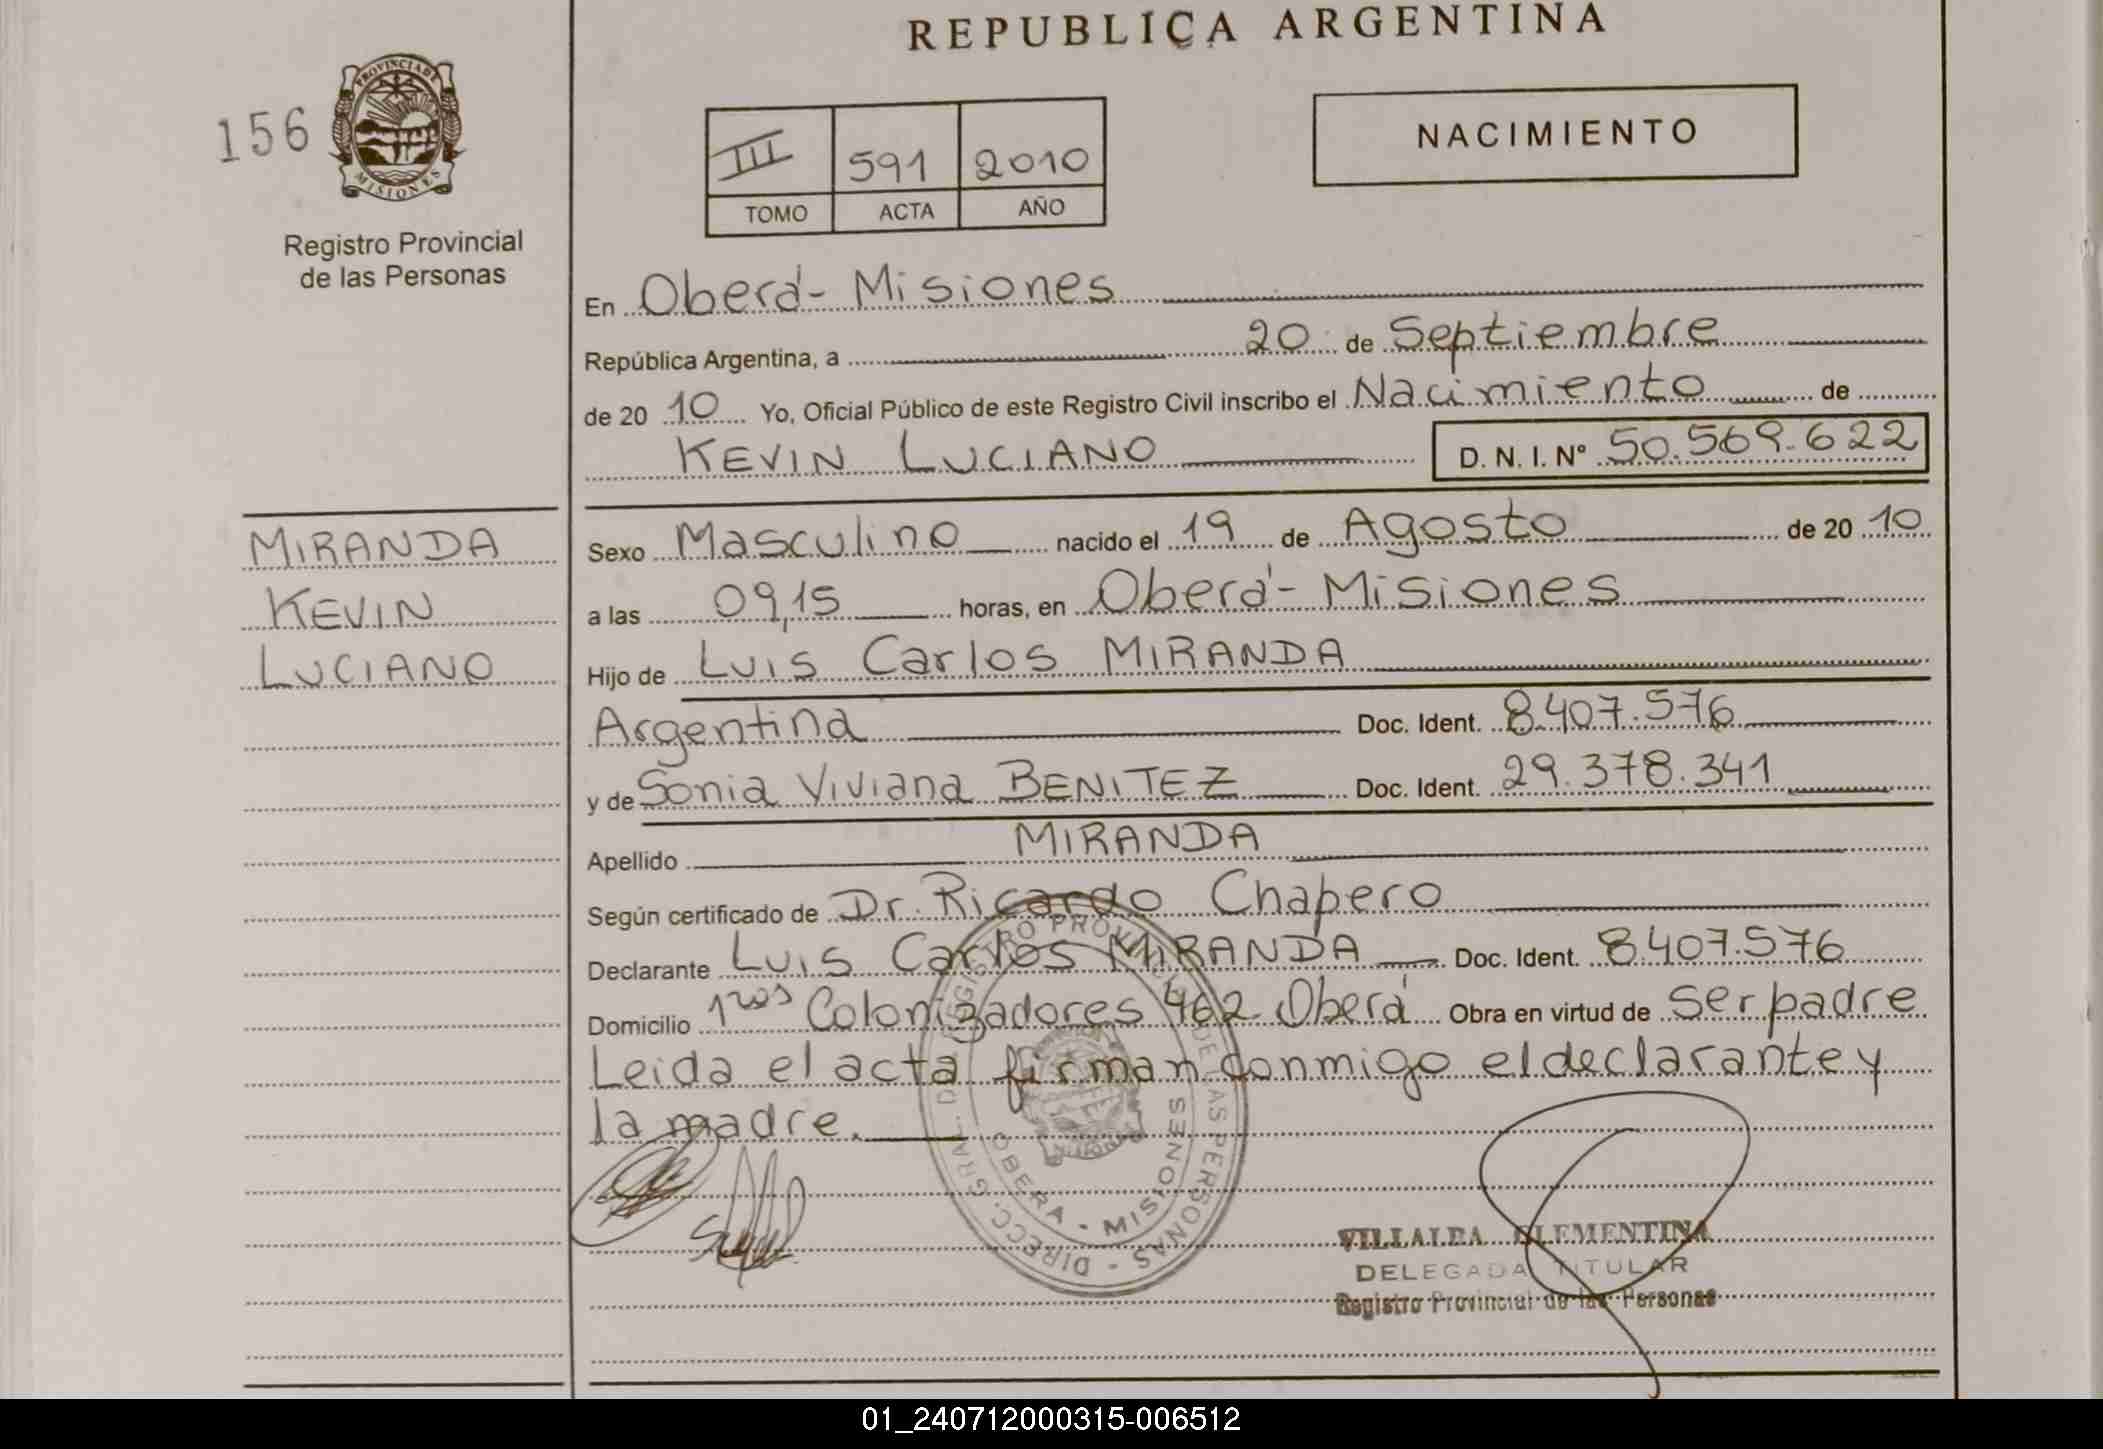 REPUBLICA ARGENTINA
156
PROVINCIA DE
MISIONES
Registro Provincial
de las Personas
III 591 2010
TOMO ACTA AÑO
NACIMIENTO
En Oberá - Misiones
República Argentina, a 20 de Septiembre
de 20 10 Yo, Oficial Público de este Registro Civil inscribo el Nacimiento de
KEVIN LUCIANO D. N. I. Nº 50.569.622
MIRANDA
KEVIN
LUCIANO
Sexo Masculino nacido el 19 de Agosto de 20 10
a las 09,15 horas, en Oberá - Misiones
Hijo de Luis Carlos MIRANDA
Argentina Doc. Ident. 8.407.576
y de Sonia Viviana BENITEZ Doc. Ident. 29.378.341
Apellido MIRANDA
Según certificado de Dr. Ricardo Chapero
Declarante Luis Carlos MIRANDA Doc. Ident. 8.407.576
Domicilio 1ros Colonizadores 462 Oberá Obra en virtud de ser padre
Leida el acta firman conmigo el declarante y
la madre.
DIRECC. GRAL. DE REGISTRO PROVINCIAL DE LAS PERSONAS
OBERA - MISIONES
VILLALBA CLEMENTINA
DELEGADA TITULAR
Registro Provincial de las Personas
01_240712000315-006512